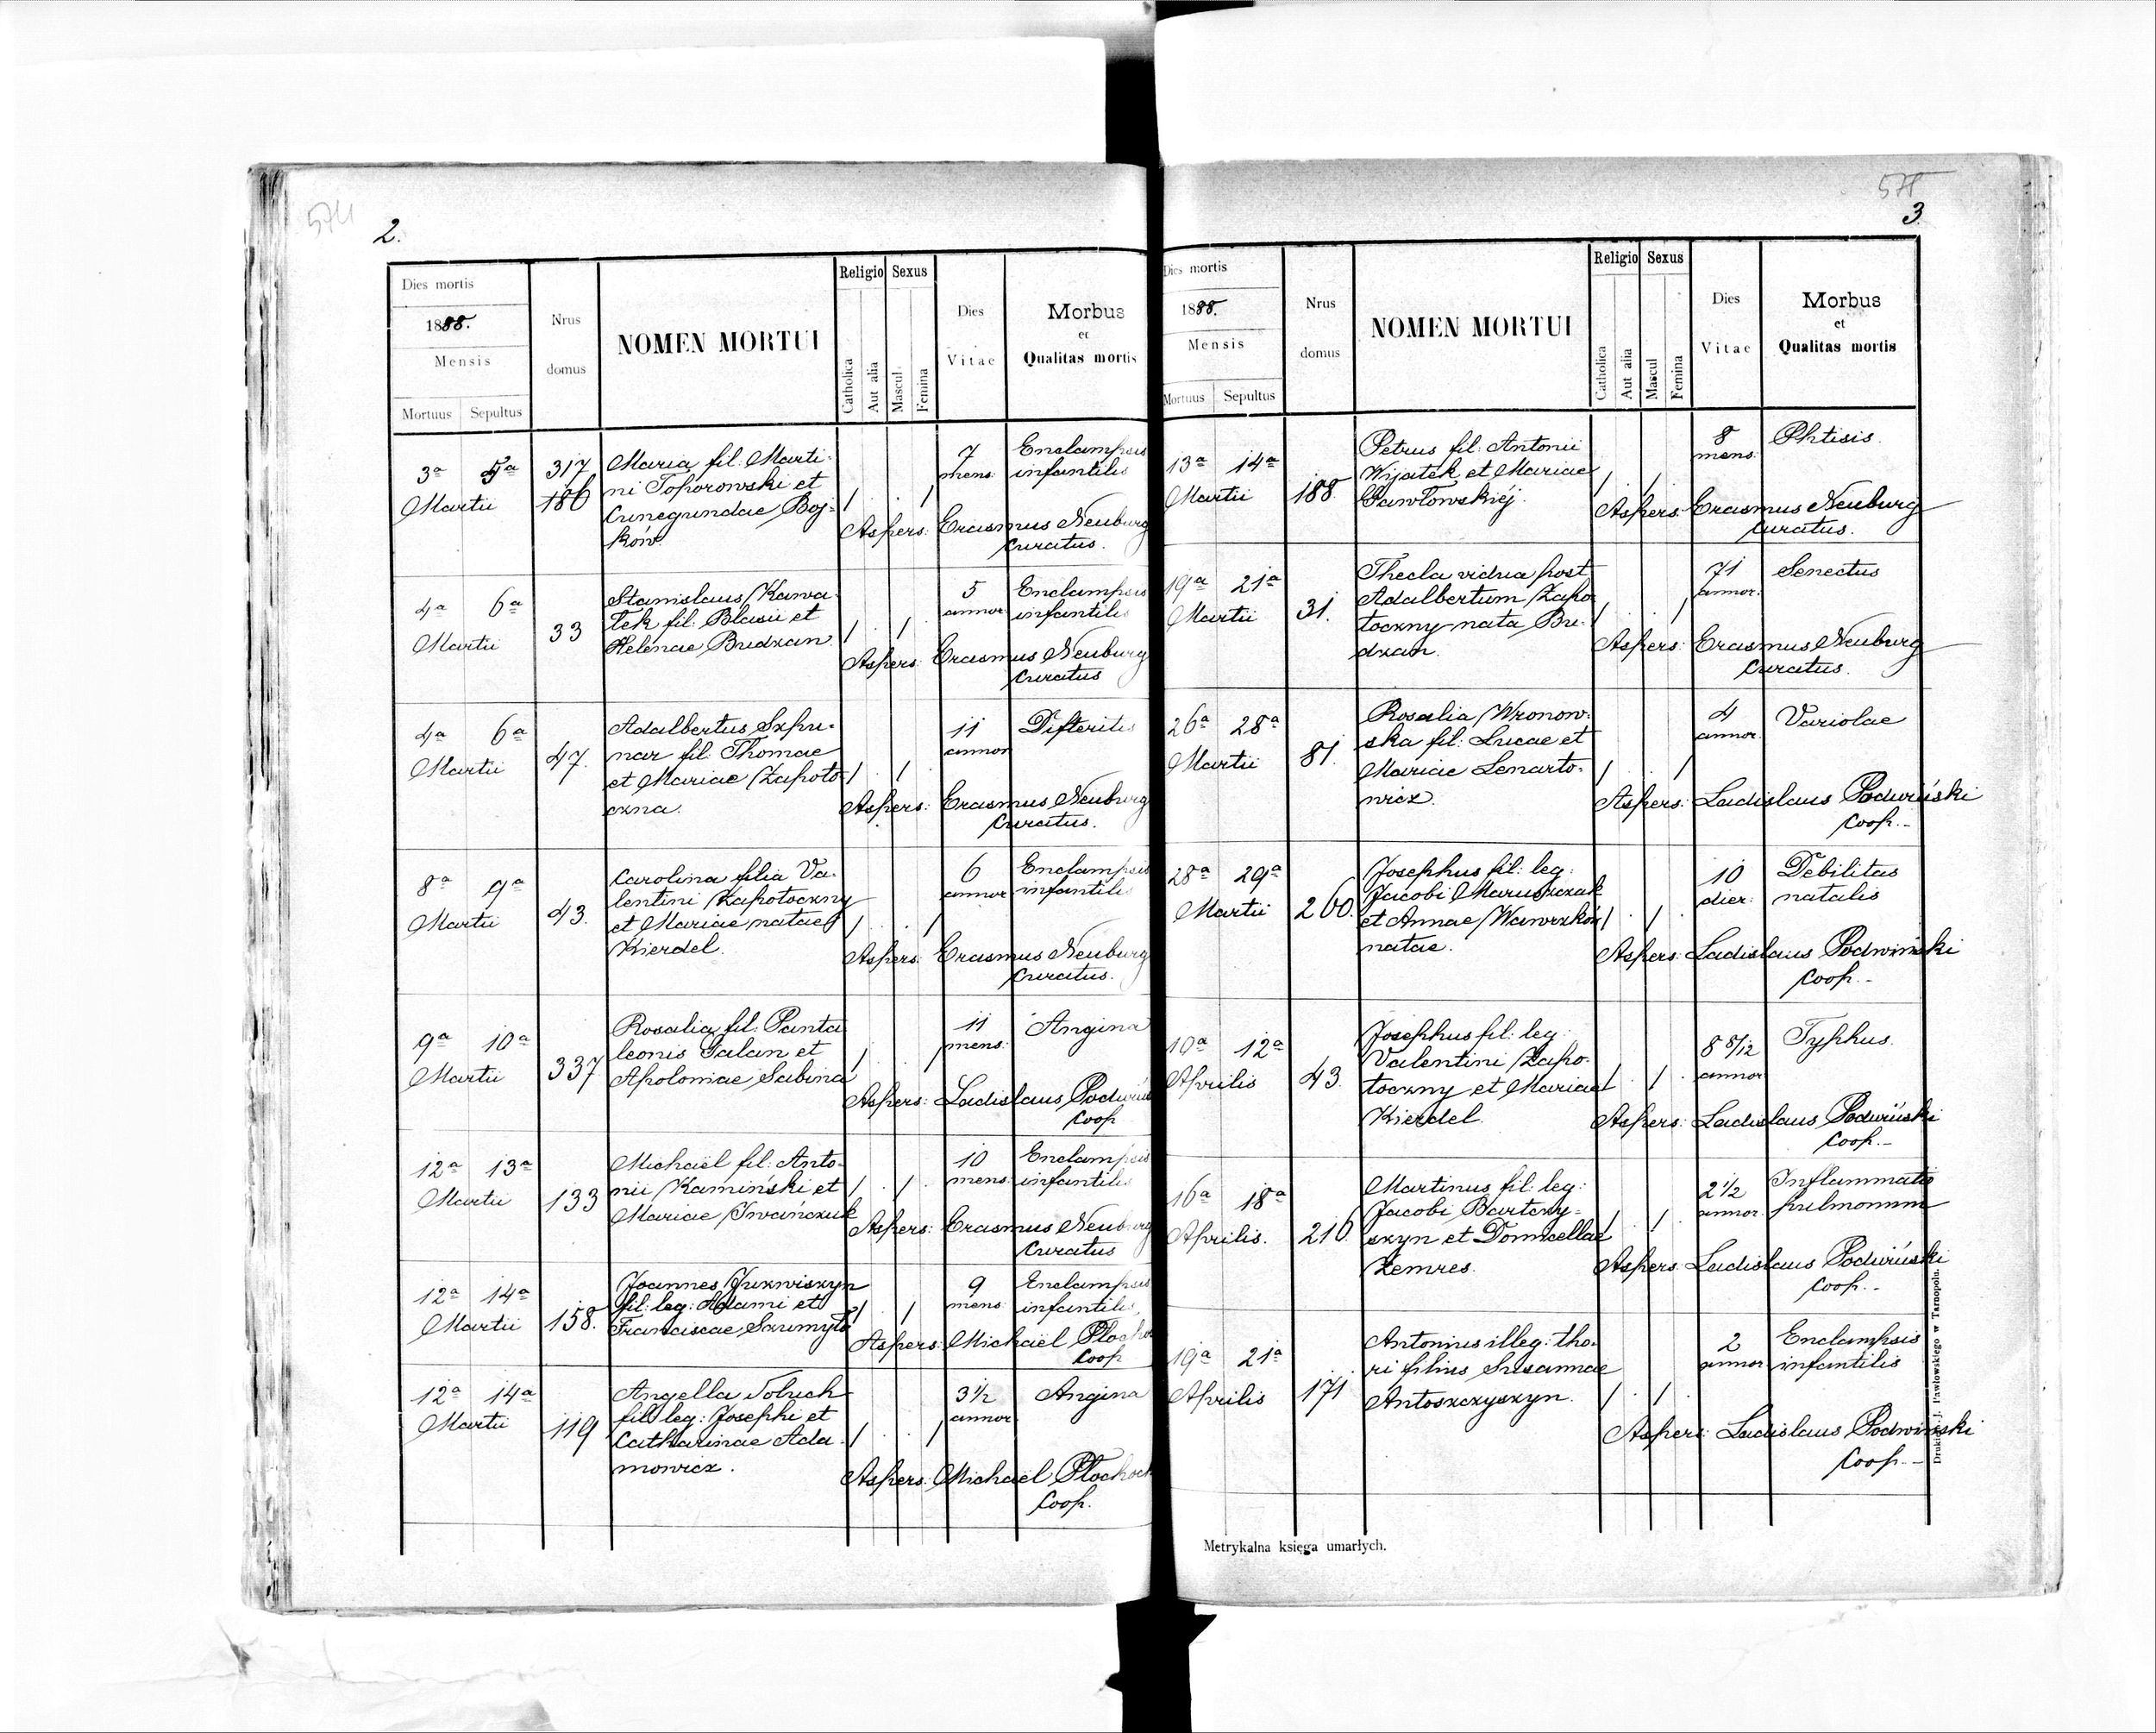 574
2.
Dies mortis
1888.
Mensis
Mortuus Sepultus
Nrus
domus
NOMEN MORTUI
Religio Sexus
Catholica
Aut alia
Mascul.
Femina
Dies
Vitae
Morbus
et
Qualitas mortis
3a 5a
Martii
317
186
Maria fil: Marti-
ni Toporowski et
Cunegundae Boj-
ków.
7
mens:
Enclampsis
infantilis
Aspers: Erasmus Neuburg
Curatus.
4a 6a
Martii
33
Stanislaus Kawa-
lek fil: Blasii et
Helenae Budzan.
5
annor:
Enclampsis
infantilis
Aspers: Erasmus Neuburg
Curatus
4a 6a
Martii
47.
Adalbertus Szpu-
nar fil: Thomae
et Mariae Zapoto-
czna.
11
annor
Difteritis
Aspers: Erasmus Neuburg
Curatus.
8a 9a
Martii
43.
Carolina filia Va-
lentini Zapotoczny
et Mariae natae
Kierdel.
6
annor
Enclampsis
infantilis
Aspers: Erasmus Neuburg
Curatus.
9a 10a
Martii
337
Rosalia fil: Panta
leonis Galan et
Apoloniae Sabina
11
mens:
Angina
Aspers: Ladislaus
Coop
12a 13a
Martii
133
Michaël fil: Anto-
nii Kamiński et
Mariae Iwańczuk
10
mens:
Enclampsis
infantilis
Aspers: Erasmus Neuburg
Curatus
12a 14a
Martii
158.
Joannes Juzwiszyn
fil: leg: Adami et
Franciscae Szumyło
9
mens
Enclampsis
infantilis
Aspers: Michaël
Coop
12a 14a
Martii
119
Angella Soluch
fil leg: Josephi et
Catharinae Ada-
mowicz.
3 1/2
annor
Angina
Aspers: Michaël
Coop.
575
3
Dies mortis
1888.
Mensis
Mortuus Sepultus
Nrus
domus
NOMEN MORTUI
Religio Sexus
Catholica
Aut alia
Mascul
Femina
Dies
Vitae
Morbus
et
Qualitas mortis
13a 14a
Martii
188.
Petrus fil: Antonii
Wijatek et Mariae
Pawłowskiéj.
8
mens.
Phtisis.
Aspers: Erasmus Neuburg
Curatus.
19a 21a
Martii
31.
Thecla vidua post
Adalbertum Zapo
toczny nata Bu-
dzan.
71
annor.
Senectus
Aspers: Erasmus Neuburg
Curatus.
26a 28a
Martii
81.
Rosalia Wronow-
ska fil: Lucae et
Mariae Lenarto-
wicz.
4
annor
Variolae
Aspers: Ladislaus Podwiński
Coop.-
28a 29a
Martii
260.
Josephus fil: leg:
Jacobi Maruszczak
et Annae Wawrzków
natae.
10
dier:
Debilitas
natalis
Aspers: Ladislaus Podwiński
Coop.-
10a 12a
Aprilis
43.
Josephus fil: leg:
Valentini Zapo-
toczny et Mariae
Kierdel.
8 8/12
annor
Typhus.
Aspers: Ladislaus Podwiński
Coop.-
16a 18a
Aprilis.
216.
Martinus fil: leg:
Jacobi Bartczy-
szyn et Domicellae
Zemres.
2 1/2
annor
Inflammatio
pulmonum
Aspers: Ladislaus Podwiński
Coop.-
19a 21a
Aprilis
171
Antonius illeg: tho-
ri filius Susannae
Antoszczyszyn.
2
annor
Enclampsis
infantilis
Aspers: Ladislaus Podwiński
Coop.-
Metrykalna księga umarłych.
Drukiem J. Pawłowskiego w Tarnopolu.